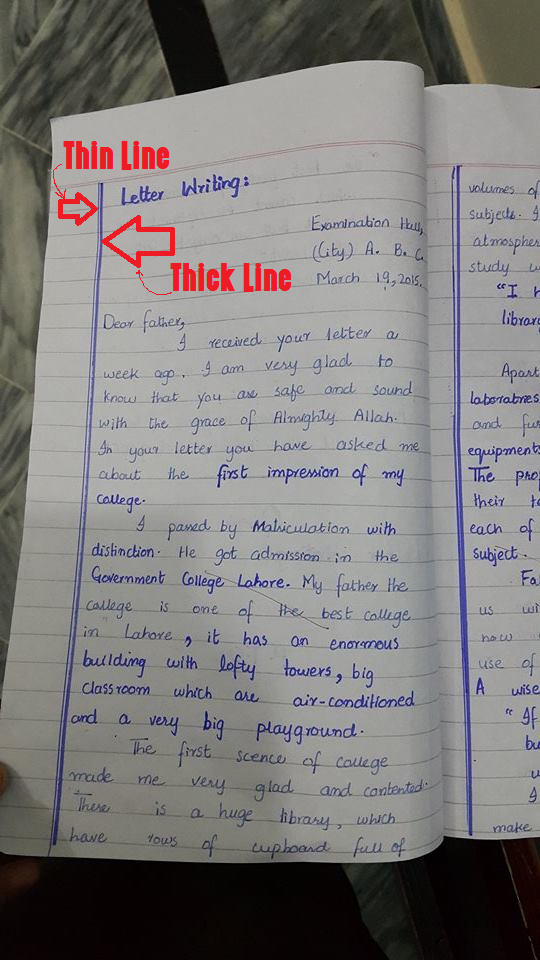 Thin Line
Thick Line
Letter Writing:
Examination Hall,
(City) A. B. C.
March 19, 2015.
Dear father,
I received your letter a
week ago. I am very glad to
know that you are safe and sound
with the grace of Almighty Allah.
In your letter you have asked me
about the first impression of my
college.
I passed by Matriculation with
distinction. He got admission in the
Government College Lahore. My father the
college is one of the best college
in Lahore, it has an enormous
building with lofty towers, big
classroom which are air-conditioned
and a very big playground.
The first scence of college
made me very glad and contented.
There is a huge library, which
have rows of cupboard full of
volumes of
subjects. I
atmospher
study w
"I h
librar
Apart
laboratries
and fur
equipments
The prop
their te
each of
subject.
Fa
us wi
now
use of
A wise
"If
bu
w
I
make